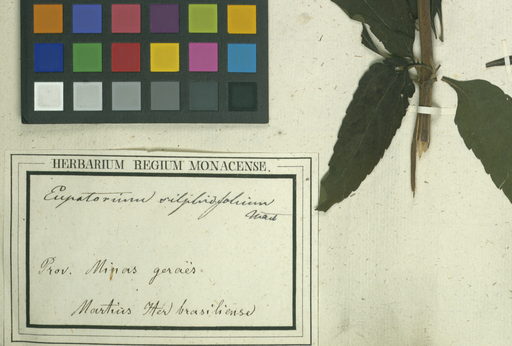 HERBARIUM REGIUM MONACENSE.
Eupatorium silphiifolium
Mart
Prov. Minas geraës.
Martius Her brasiliense